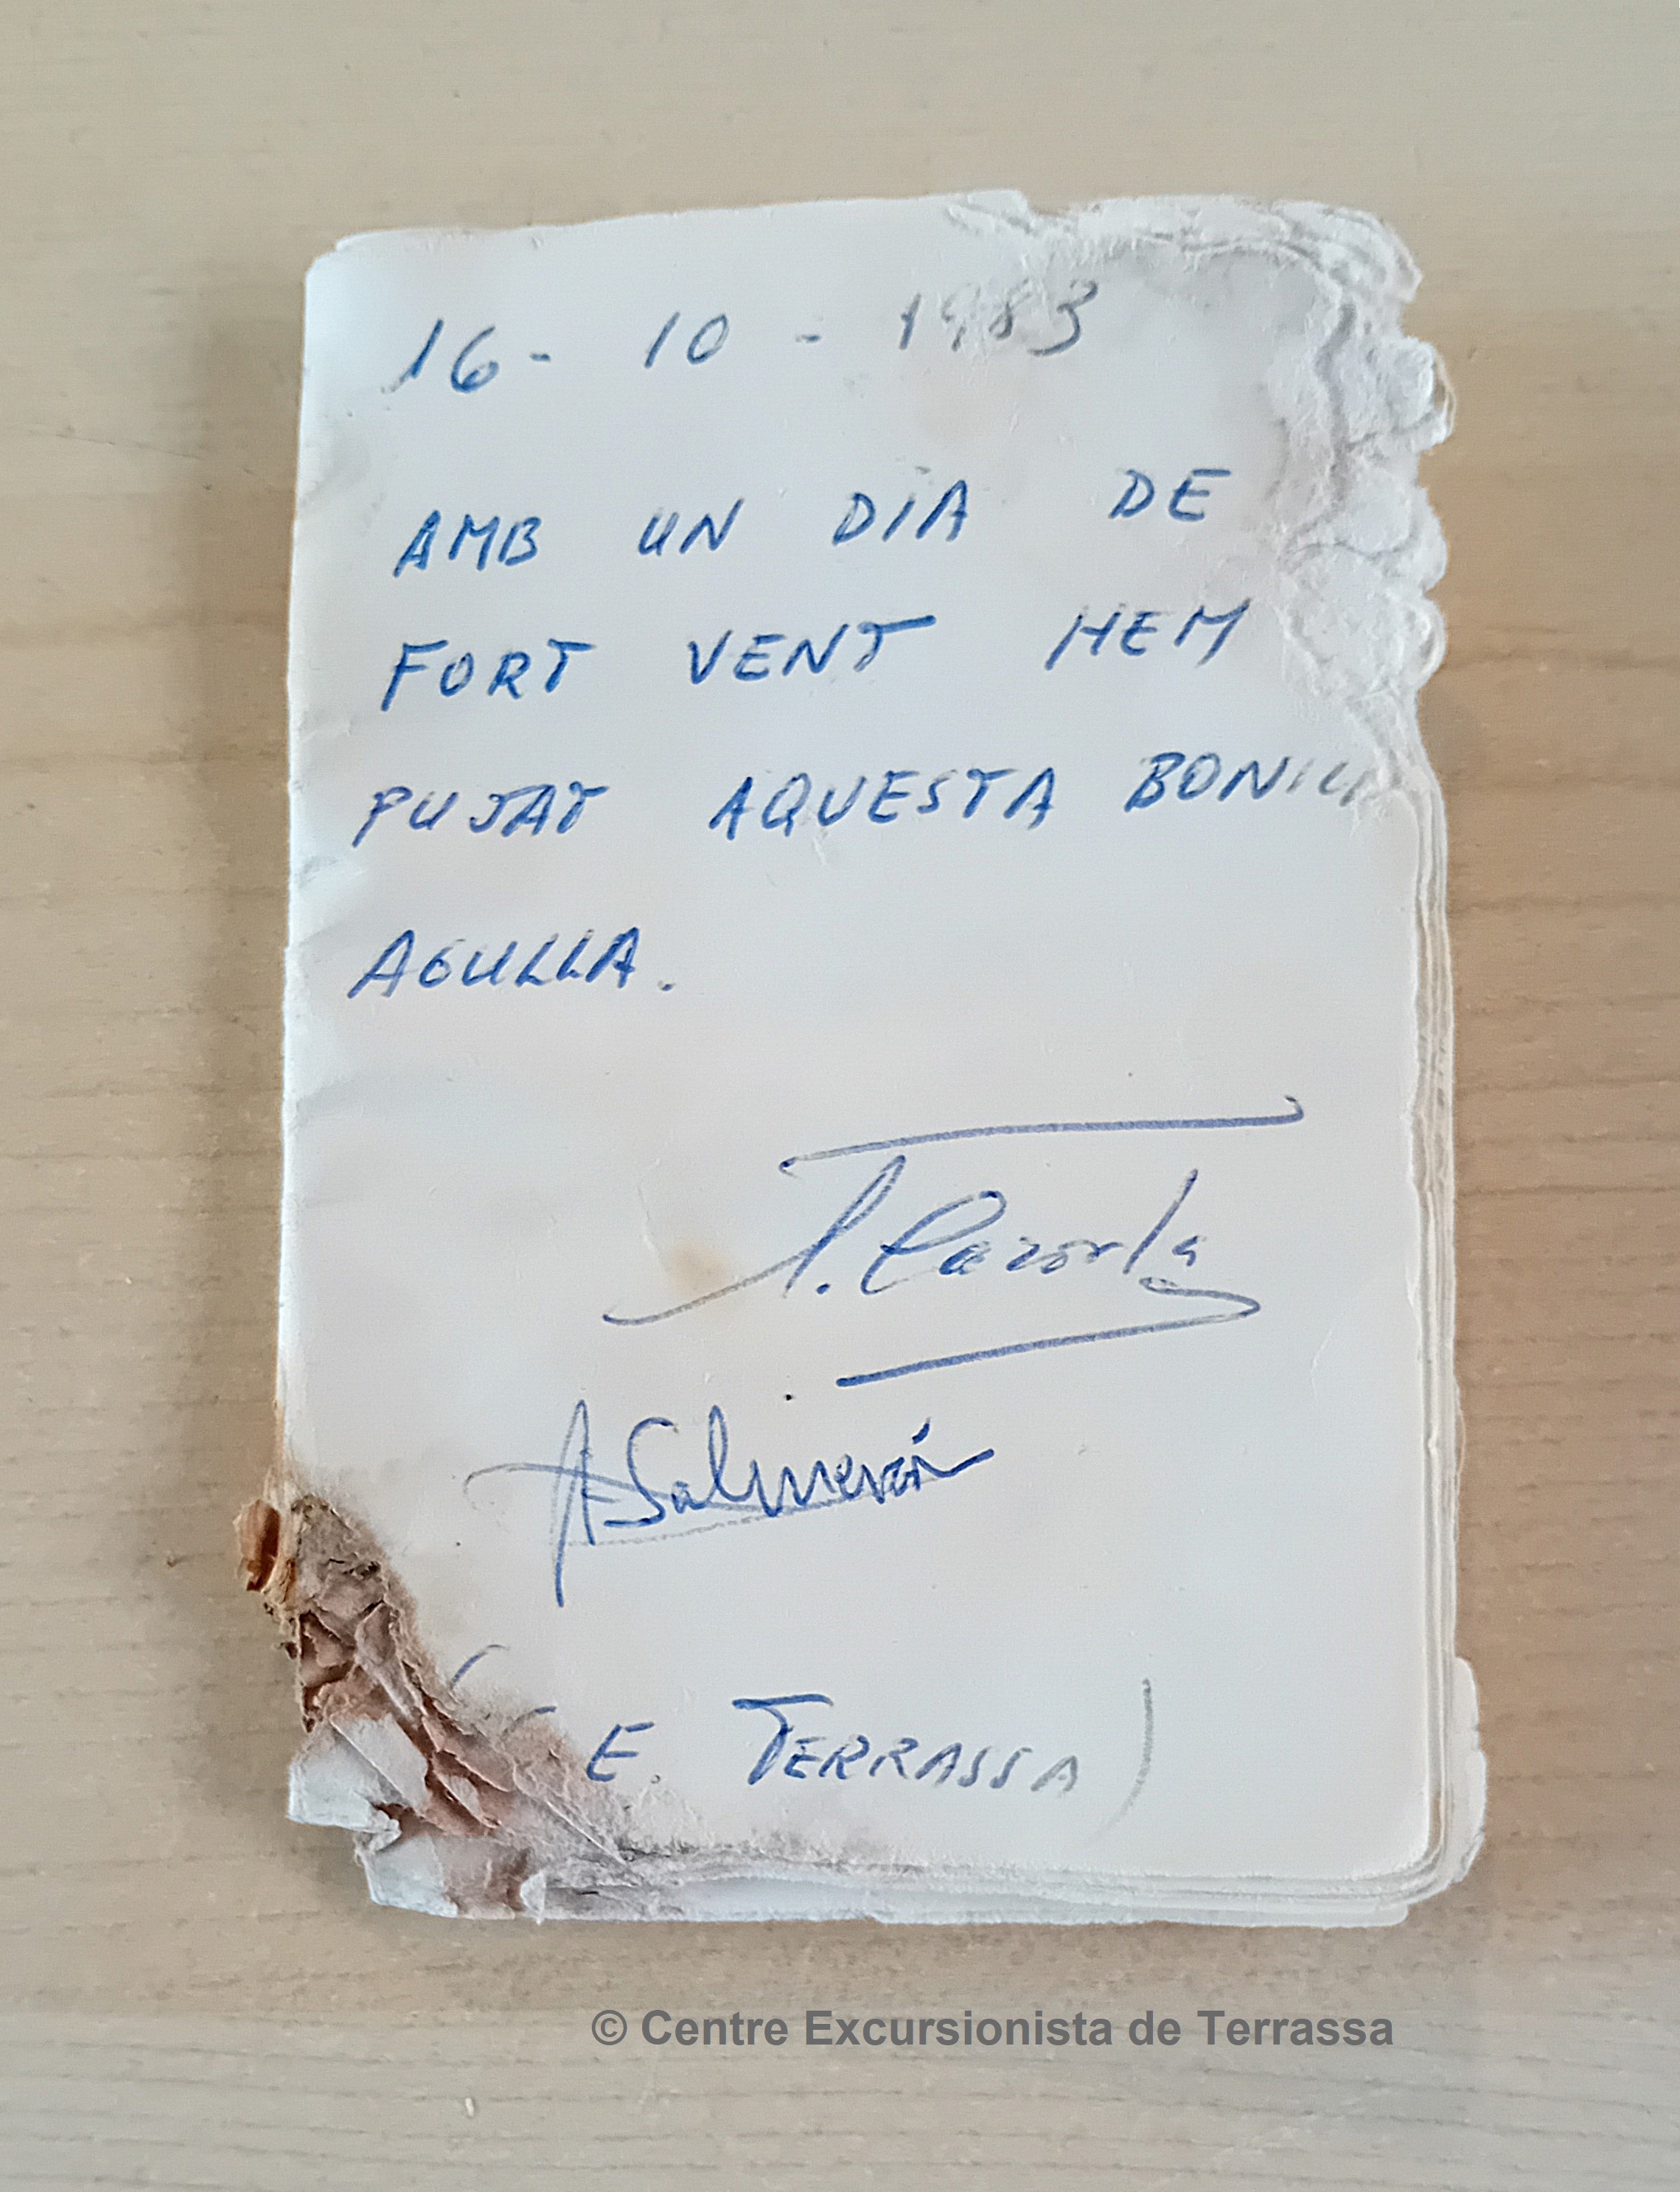 16 - 10 - 1983
AMB UN DIA DE
FORT VENT HEM
PUJAT AQUESTA
AGULLA.
J. Cazorla
A Salmerón
E. TERRASSA)
© Centre Excursionista de Terrassa